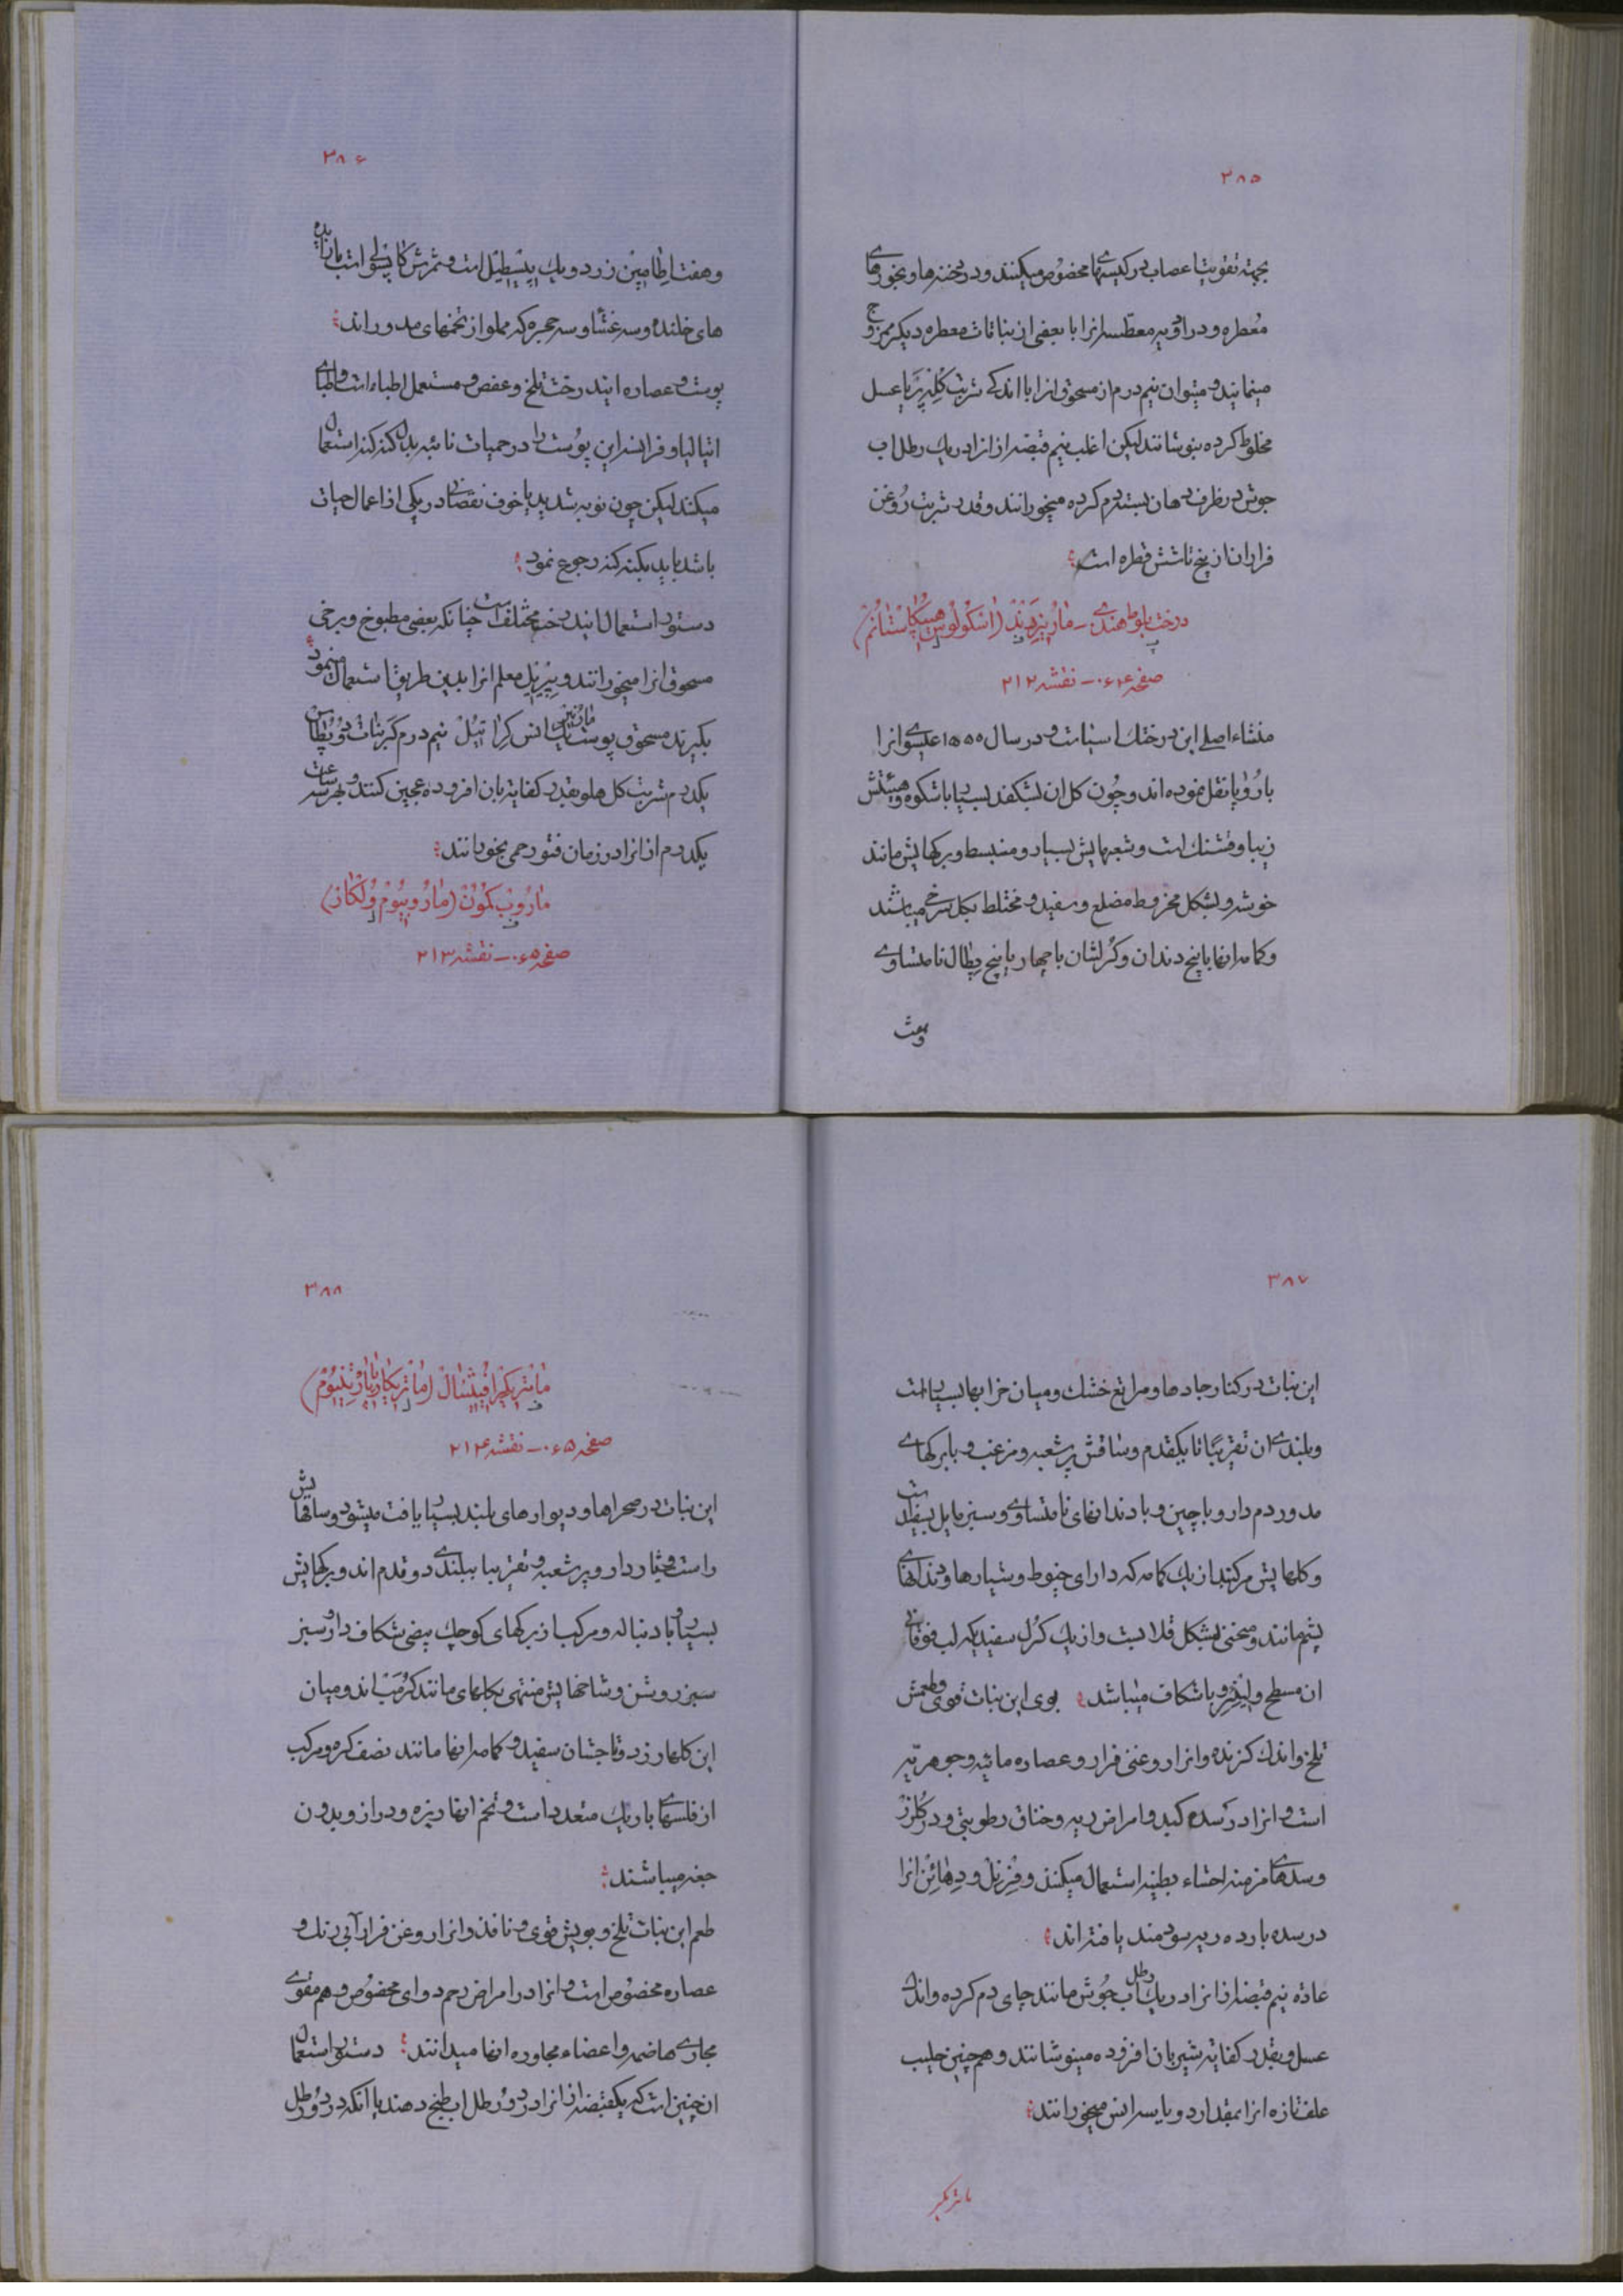 ۳۸۵
بجهته تقویت اعصاب در کیسهای مخصوص میکنند و در دخنه ها و بخورهای
معطره و در ادویه معطسه انرا با بعضی از نباتات معطره دیکر ممزوج
مینمایند و میتوان نیم درم از مسحوق انرا با اندکی شربت یا عسل
مخلوط کرده بنوشانند لیکن اغلب نیم قبضه از انرا در یک رطل اب
جوش در ظرف دهان بسته دم کرده میخورانند و قدر شربت روغن
فرار ان از پنج تا شش قطره است
درخت بلوط هندی - مارنیردند (اسکولوس هیپکاستانم)
صفحه ۰۶۴ - نقشه ۲۱۲
منشاء اصلی این درخت اسیا است و در سال ۱۵۵۰ عیسوی انرا
باروپا نقل نموده اند و چون کل ان بشکفد بسیار باشکوه و هیئتش
زیبا و قشنک است و شعبهایش بسیار و منبسط و برکهایش مانند
خوشه و بشکل مخروط مضلع و سفید و مختلط بکل سرخ میباشد
و کاسه انها با پنج دندان و کرلشان با چهار یا پنج پطال نامتساوی
وهفت
۳۸۶
و هفت اطامین زرد و یک پیسطیل است و ثمرش کاپسولی است با زایده
های خلنده و سه غشا و سه حجره که مملو از تخمهای مدور اند
پوست و عصاره ایندرخت تلخ و عفص و مستعمل اطباء است و اطبای
ایتالیا و فرانسه این پوست را در حمیات نائبه بدل کنه کنه استعمال
میکنند لیکن چون نوبه شدید یا خوف نقصانی در یکی از اعمال حیات
باشد باید بکنه کنه رجوع نمود
دستور استعمال ایندرخت مختلف است چنانکه بعضی مطبوخ و برخی
مسحوق انرا میخورانند و پیریل معلم انرا بدین طریق استعمال مینمود
بکیرند مسحوق پوست مارنیر یک انس کراتیل نیم درم کربنات دو پطاس
یکدرم شربت کل هلو بقدر کفایه بان افزوده عجین کنند و بهر سه ساعت
یکدرم از انرا در زمان فتور حمی بخورانند
ماروب کمون (ماروبیوم ولکار)
صفحه ۰۶۵ - نقشه ۲۱۳
۳۸۷
این نبات در کنار جادها و مراتع خشک و میان خرابها بسیار است
و بلندی ان تقریبًا تا یکقدم و ساقش پر شعبه و مزغب و با برکهای
مدور دم دار و با چین و با دندانهای نامتساوی و سبز مایل بسفیدیست
و کلهایش مرکبند از یک کاسه که دارای خیوط و شیارها و دندانهای
پشم مانند و منحنی بشکل قلابست و از یک کرل سفید که لب فوقانی
ان مسطح و با شکاف میباشد بوی این نبات قوی و طعمش
تلخ و اندک کزنده و انرا روغنی فرار و عصاره مائیه و جوهریه
است و انرا در سده کبد و امراض ریه و خناق رطوبتی و در کلرز
و سدهای مزمنه احشاء بطنیه استعمال میکنند و فرنل و دهائن انرا
در سده بارده ریه سودمند یافته اند
عادة نیم قبضه از انرا در یک رطل اب جوش مانند چای دم کرده و اندک
عسل و بقدر کفایه شیر بان افزوده مینوشانند و هم چنین حلیب
علف تازه انرا بمقدار دو یا سه انس میخورانند
ماتریکر
۳۸۸
ماتریکیر افیثنال (ماتریکاریا پارتنیوم)
صفحه ۰۶۵ - نقشه ۲۱۴
این نبات در صحراها و دیوارهای بلند بسیار یافت میشود و ساقهایش
راست و خیار دار و پر شعبه و تقریبا ببلندی دو قدم اند و برکهایش
بسیار و با دنباله و مرکب از برکهای کوچک بیضی شکاف دار و سبز
سبز روشن و شاخهایش منتهی بکلهای مانند کرمب اند و میان
این کلها زرد و تاجشان سفید و کاسه انها مانند نصف کره و مرکب
از فلسهای باریک متعدد است و تخم انها ریزه و دراز و بدون
جغه میباشند
طعم این نبات تلخ و بویش قوی و نافذ و انرا روغن فرار آبی رنک و
عصاره مخصوص است و انرا در امراض رحم دوای مخصوص و هم مقوی
مجاری هاضمه و اعضاء مجاوره انها میدانند دستور استعمال
ان چنین است که یکقبضه از انرا در دو رطل اب طبخ دهند یا انکه در دو رطل